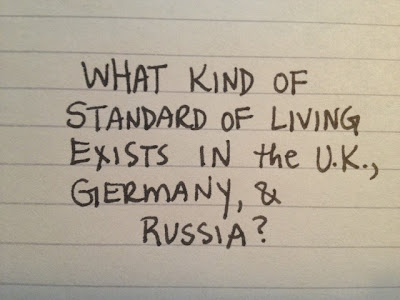 WHAT KIND OF
STANDARD OF LIVING
EXISTS IN the U.K.,
GERMANY, &
RUSSIA?